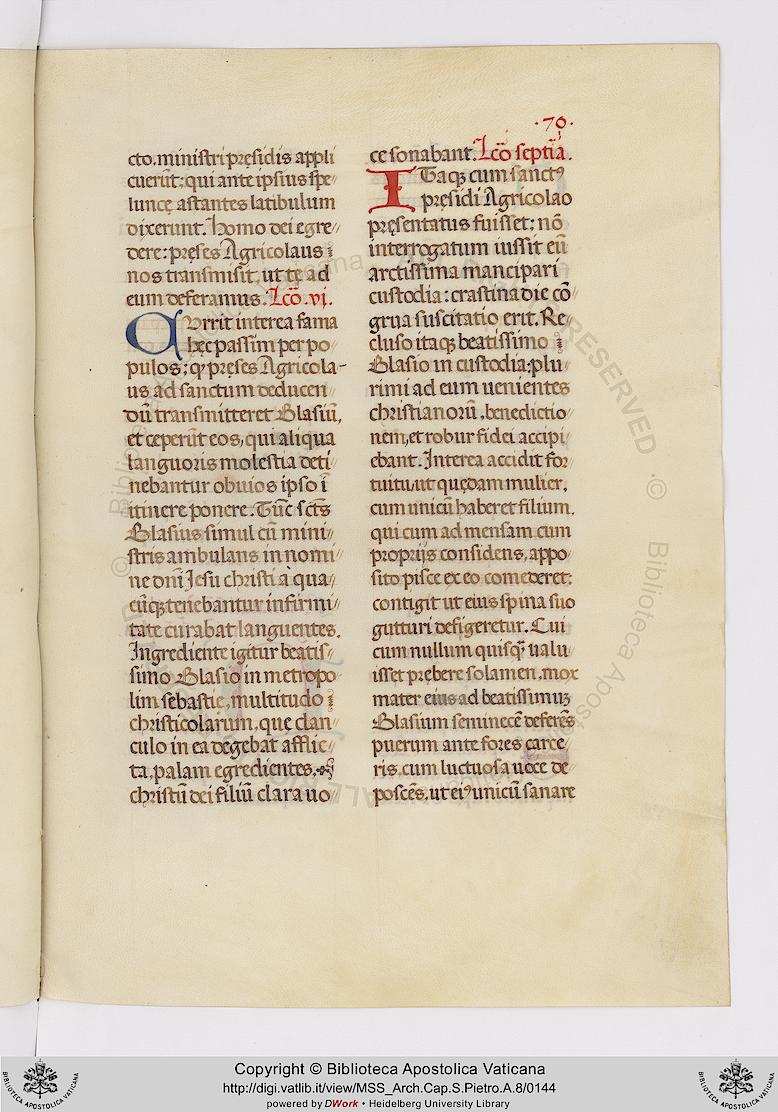 ·70·
cto. ministri pręsidis appli
cuerūt: qui ante ipsius spe
luncę astantes latibulum
dixerunt. Homo dei egre
dere: pręses Agricolaus
nos transmisit, ut te ad
eum deferamus. Lcō .vj.
Currit interea fama
hęc passim per po
pulos: qꝙ pręses Agricola-
us ad sanctum deducen
dū transmitteret Blasiū,
et cęperūt eos, qui aliqua
languoris molestia deti
nebantur obuios ipso ī
itinere ponere. Tūc sctūs
Blasius simul cū mini
stris ambulans in nomi
ne dn̄i Jesu christi à qua
cūqꝫ tenebantur infirmi
tate curabat languentes.
Ingrediente igitur beatis
simo Blasio in metropo
lim sebastię, multitudo
christicolarum, quę clan
culo in ea degebat afflic
ta, palam egredientes,
christū dei filiū clara uo
ce sonabant. Lcō septīa.
ITaqꝫ cum sanctꝰ
pręsidi Agricolao
pręsentatus fuisset: nō
interrogatum iussit eū
arctissima mancipari
custodia: crastina die cō
grua suscitatio erit. Re
cluso itaqꝫ beatissimo
Blasio in custodia: plu
rimi ad eum uenientes
christianorū, benedictio
nem, et robur fidei accipi
ebant. Interea accidit for
tuitu, ut quędam mulier,
cum unicū haberet filium,
qui cum ad mensam cum
proprijs considens, appo
sito pisce ex eo comederet:
contigit ut eius spina suo
gutturi defigeretur. Cui
cum nullum quisqꝫ ualu
isset prębere solamen, mox
mater eius ad beatissimuꝫ
Blasium seminecē deferēs
puerum ante fores carce
ris, cum luctuosa uoce de
poscēs, ut eiꝰ unicū sanare
Copyright © Biblioteca Apostolica Vaticana
http://digi.vatlib.it/view/MSS_Arch.Cap.S.Pietro.A.8/0144
powered by DWork • Heidelberg University Library
BIBLIOTECA APOSTOLICA VATICANA
BIBLIOTECA APOSTOLICA VATICANA